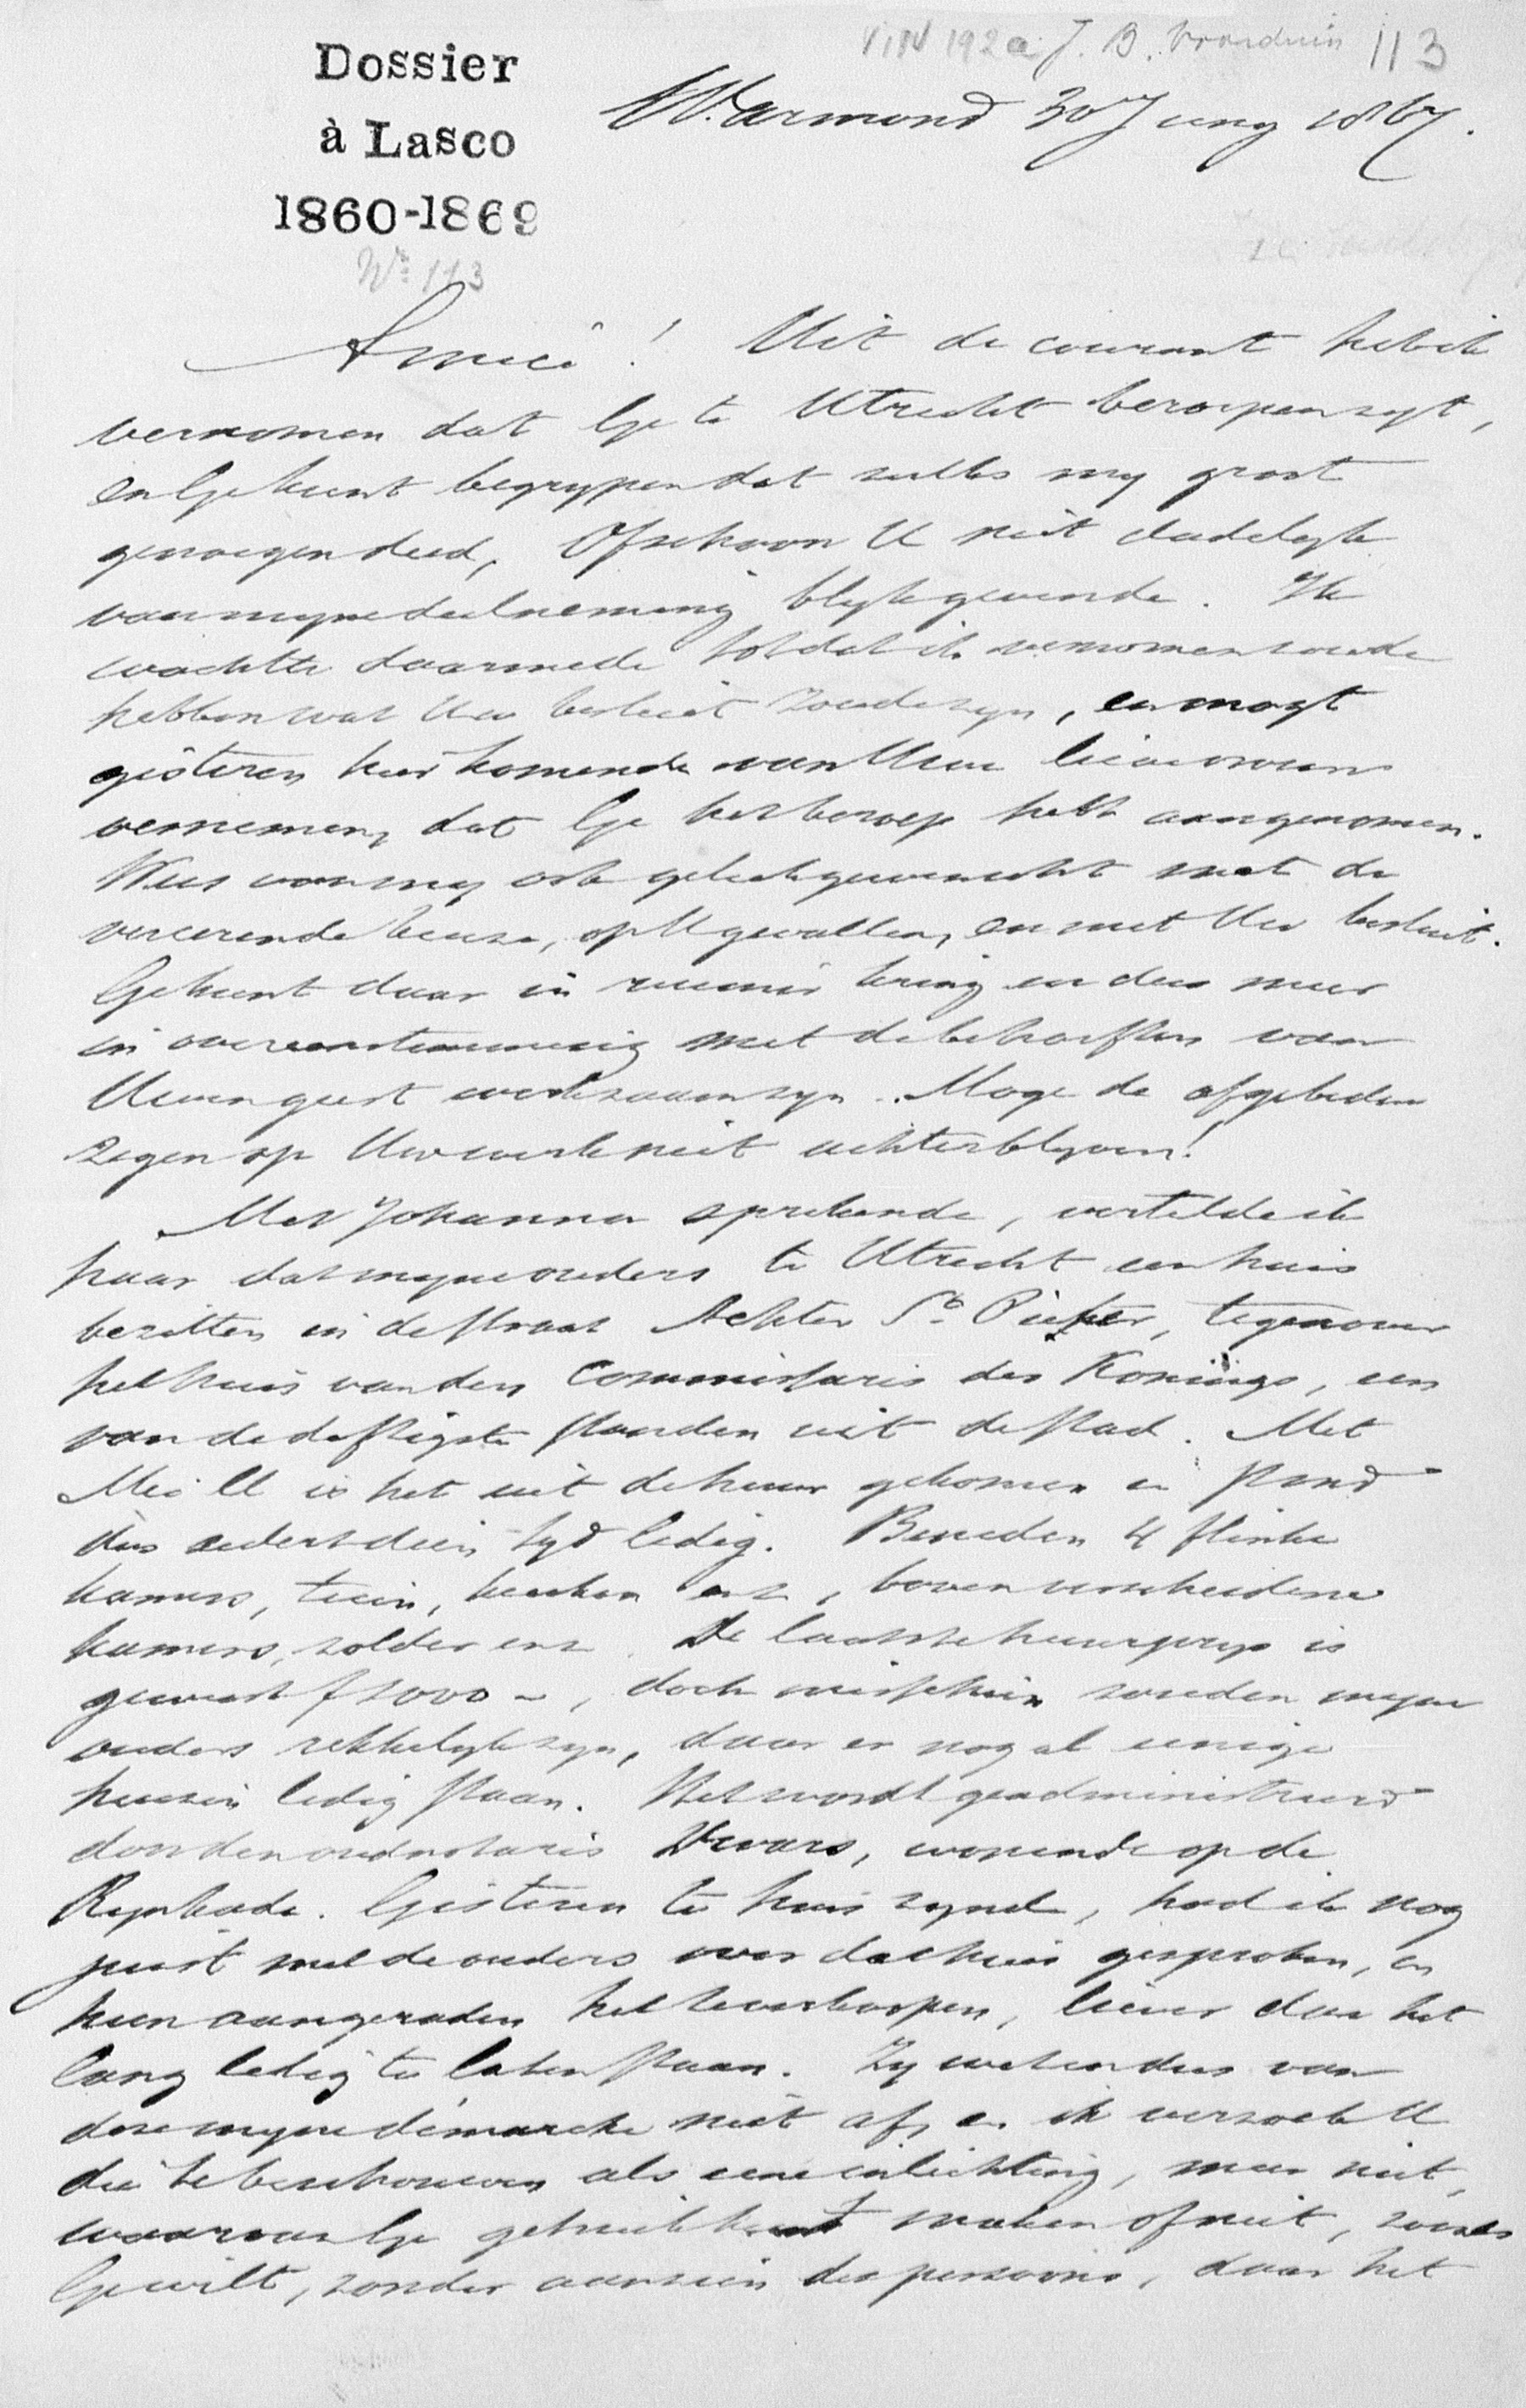 VIN 192a J. B. Voorduin 113
Dossier
à Lasco
1860-1869
No 113
Warmond 30 Juny 1867.
Amice! Uit de courant heb ik
vernomen dat Ge te Utrecht beroepen zyt,
en Ge kunt begrypen dat zulks my groot
genoegen deed, Ofschoon U niet dadelyk
van myne deelneming blyk gevende. Ik
wachtte daarmede totdat ik vernomen zoude
hebben wat Uw besluit zoude zyn, en mogt
gisteren hier komende van Uwe lieve vrouw
vernemen, dat Ge het beroep hebt aangenomen.
Wees van my ook gelukgewenscht met de
vereerende keuze, op U gevallen, en met Uw besluit.
Ge kunt daar in ruimer kring en dus meer
in overeenstemming met de behoeften van
Uwen geest werkzaam zyn. Moge de afgebeden
zegen op Uw werk niet achterblyven!
Met Johanna sprekende, vertelde ik
haar dat myne ouders te Utrecht een huis
bezitten in de straat Achter St. Pieter, tegenover
het huis van den Commissaris des Konings, een
van de deftigste standen uit de stad. Met
Mei ll is het uit de huur gekomen en stond
dus sedert dien tyd ledig. Beneden 4 flinke
kamers, tuin, keuken enz, boven verscheidene
kamers, zolder enz. De laatste huurprys is
geweest f 1000 –, doch misschien zouden myne
ouders rekkelyk zyn, daar er nog al eenige
huizen ledig staan. Het wordt geadministreerd
door den oudnotaris Dwars, wonende op de
Rynkade. Gisteren te huis zynde, had ik nog
juist met de ouders over dat huis gesproken, en
hun aangeraden het te verkoopen, liever dan het
lang ledig te laten staan. Zy weten dus van
deze myne démarche niet af, en ik verzoek U
die te beschouwen als eene inlichting, meer niet,
waarvan Ge gebruik kunt maken of niet, zooals
Ge wilt, zonder aanzien des persoons, daar het